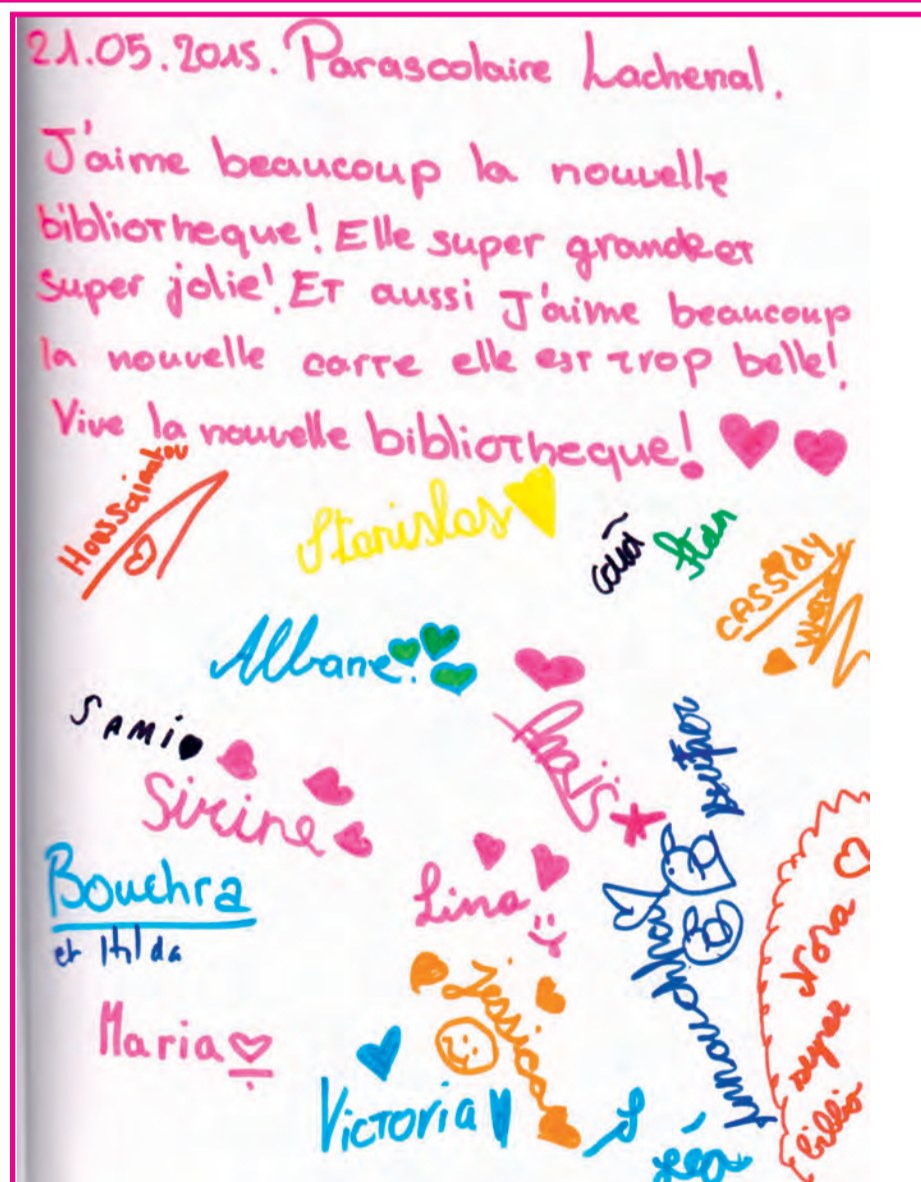 21.05.2015. Parascolaire Lachenal.
J'aime beaucoup la nouvelle
bibliotheque! Elle super grande et
super jolie! Et aussi J'aime beaucoup
la nouvelle carte elle est trop belle!
Vive la nouvelle bibliotheque!
Houssainatou
Stanislas
Stan
CASSIDY
Albane
SAMi
Sirine
Bouchra
et Hilda
Lina
Maria
Jessica
Victoria
Léa
Nora
super
biblio